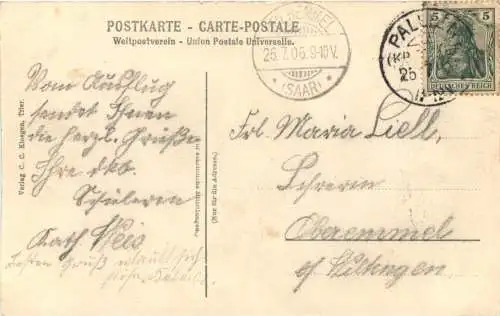 POSTKARTE - CARTE-POSTALE
Weltpostverein - Union Postale Universelle.
OBEREMMEL
26.7.06.9-10V.
* (SAAR) *
PALZEM
25
5 5
DEUTSCHES REICH
Verlag C. C. Kluegen, Trier.
Vom Ausflug
sendet Ihnen
die herzl. Grüße
Ihre dkb.
Schülerin
Kath. Weis
besten Gruß erlaubt sich
(Nur für die Adresse.)
Frl. Maria Liell,
Lehrerin
Oberemmel
b/ Wiltingen